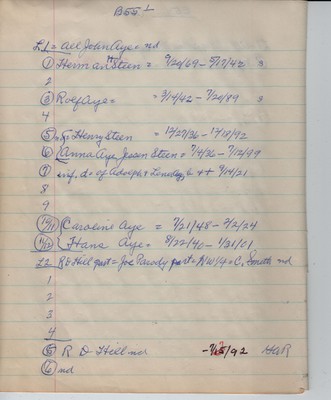 L1 = All John Aye = nd
① Herman H Steen = 9/20/69 - 5/17/42 3
2
③ Rolf Aye = = 3/14/42 - 7/20/89 3
4
⑤ F. Henry Steen = 12/27/36 - 1/18/92
⑥ Anna Aye Jessen Steen = 7/4/36 - 7/12/99
⑦ inf. d of Adolph + 9/14/21
8
9
10/11 Caroline Aye = 7/21/48 - 2/2/24
11/12 Hans Aye = 8/22/40 - 1/31/01
L2 R D Hill part = Joe Parody part = NW 1/4 = C. Smith nd
1
2
3
4
⑤ R D Hill nd /92 HGR
⑥ nd